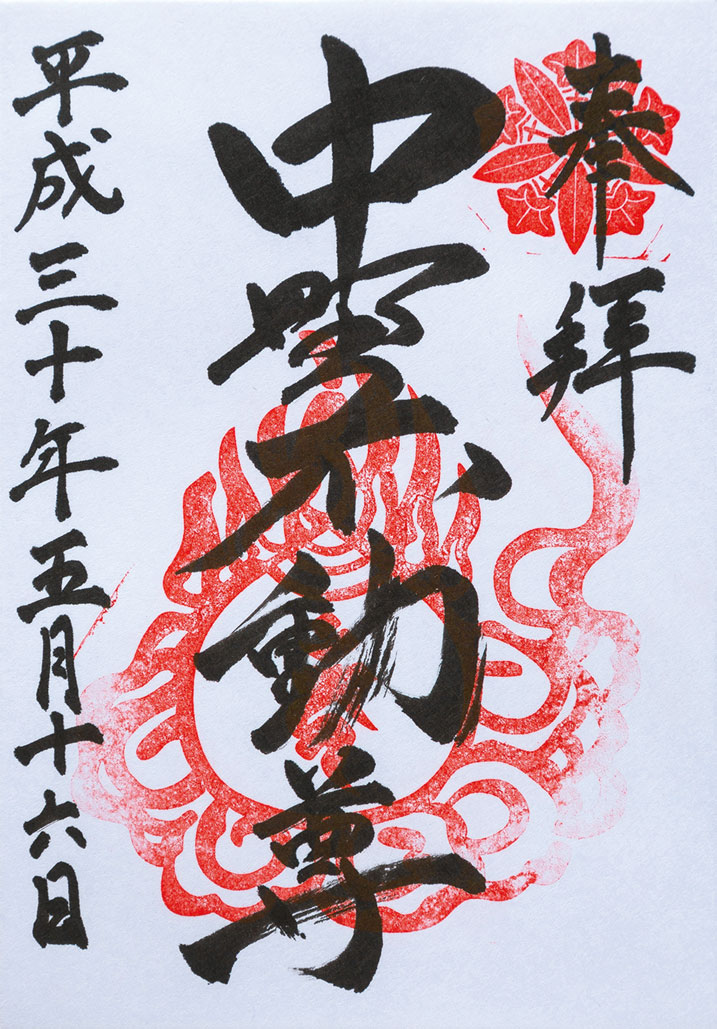 奉拝
中野不動尊
平成三十年五月十六日